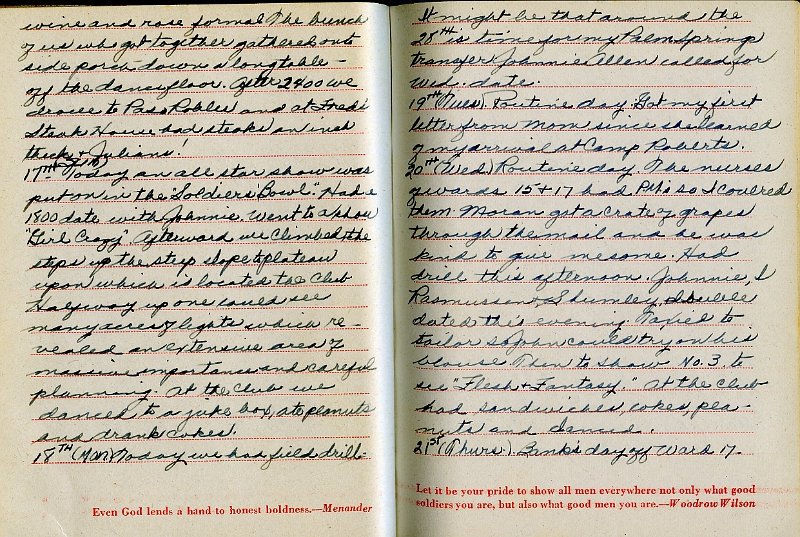 wine and rose formal The bunch
of us who got together gathered onto
side porch down a long table -
off the dance floor. After 2400 we
drove to Paso Robles and at Fredi
Steak House had steaks an inch
thick + Julians!
17TH Sun Today an all star show was
put on in the "Soldiers Bowl". Had a
1800 date with Johnnie. Went to a show
"Girl Crazy". Afterward we climbed the
steps up the steep slope to plateau
upon which is located the Club
Halfway up one could see
many acres of lights which re-
vealed an extensive area of
massive importance and careful
planning. At the Club we
danced to a juke box, ate peanuts
and drank cokes.
18TH (Mon) Today we had field drill.
Even God lends a hand to honest boldness.—Menander
It might be that around the
28TH is time for my Palm Springs
transfer Johnnie Allen called for
Wed. date.
19TH (Tues). Routine day. Got my first
letter from Mom since she learned
of my arrival at Camp Roberts.
20TH (Wed) Routine day The nurses
of wards 15 + 17 had PMs so I covered
them. Moran got a crate of grapes
through the mail and he was
kind to give me some. Had
drill this afternoon. Johnnie, I
Rasmussen + Shumley, double
dated this evening. Taxied to
tailor so John could try on his
blouse Then to show No. 3. to
see "Flesh + Fantasy." At the Club
had sandwiches, cokes, pea
nuts and danced.
21st (Thurs). Banks day off Ward 17.
Let it be your pride to show all men everywhere not only what good
soldiers you are, but also what good men you are.—Woodrow Wilson